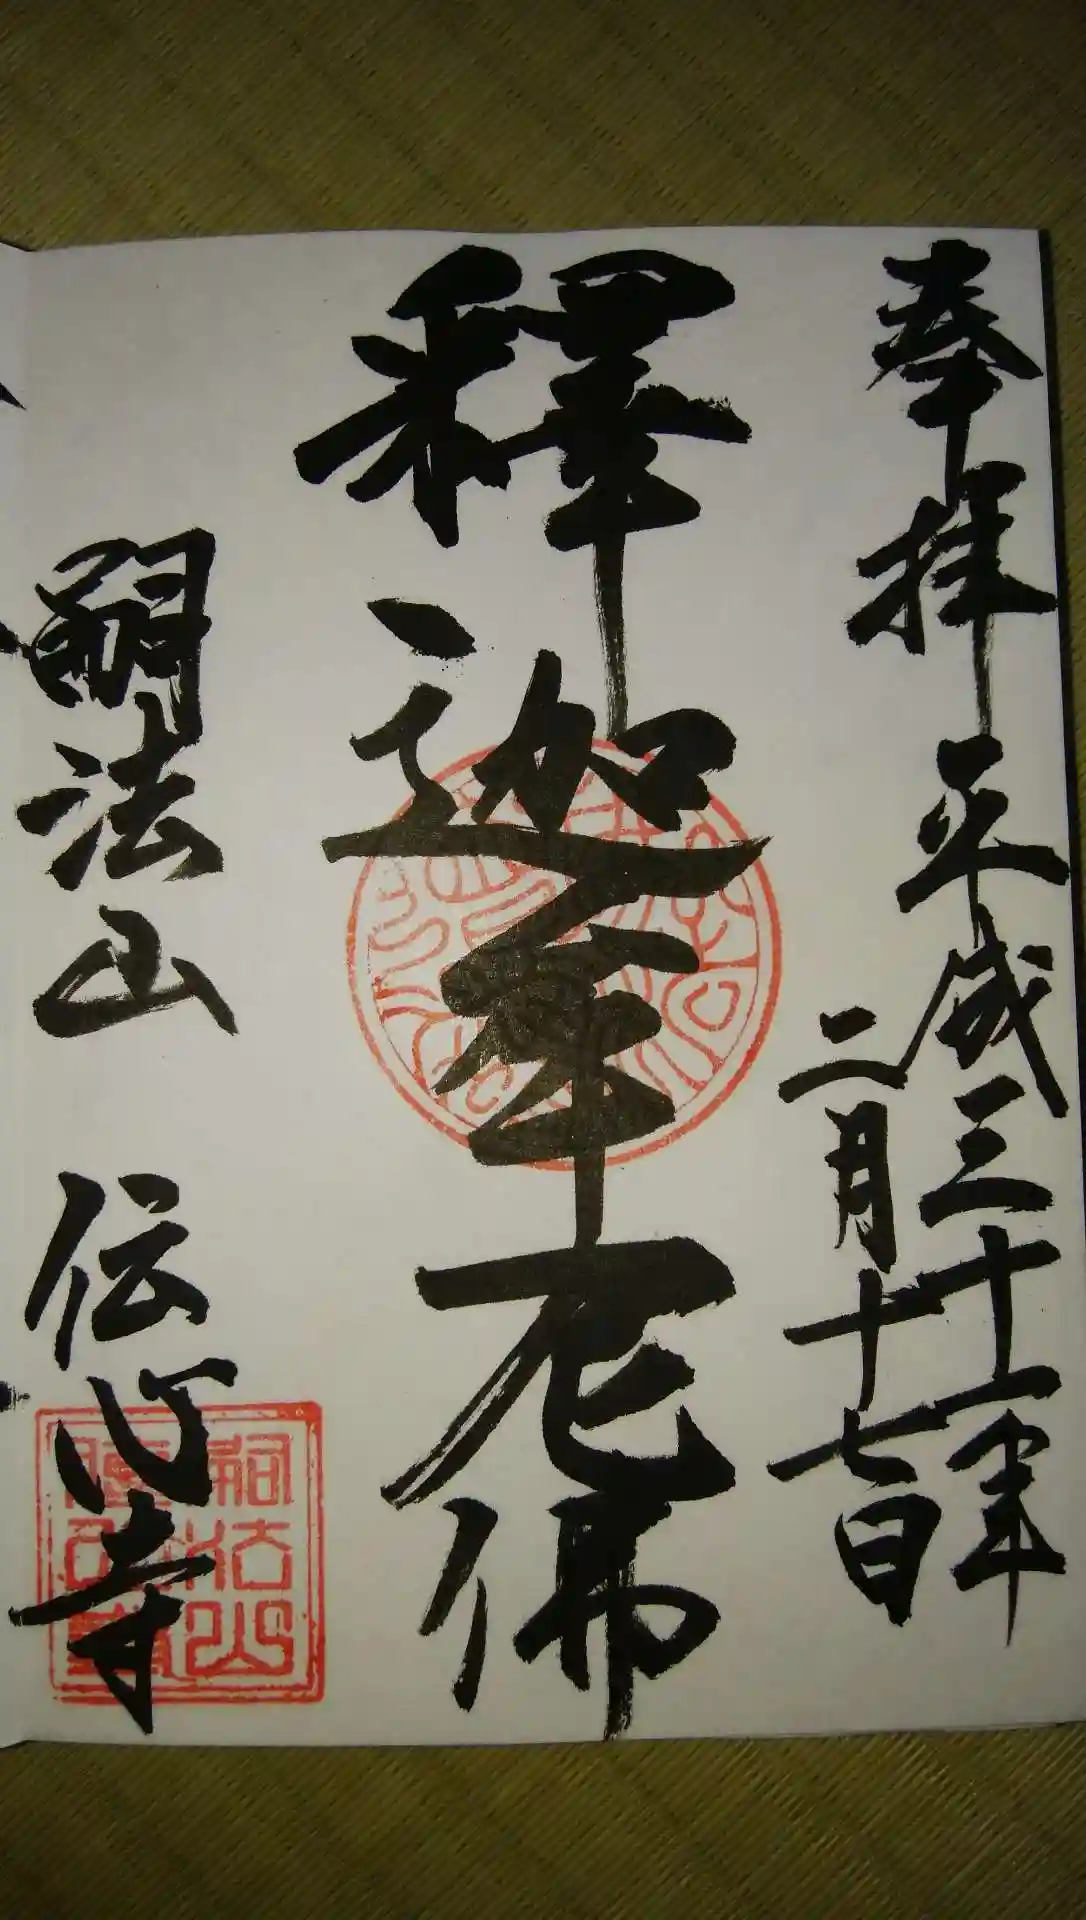 奉拝 平成三十一年
二月十七日
釋迦牟尼佛
嗣法山 伝心寺
嗣法山